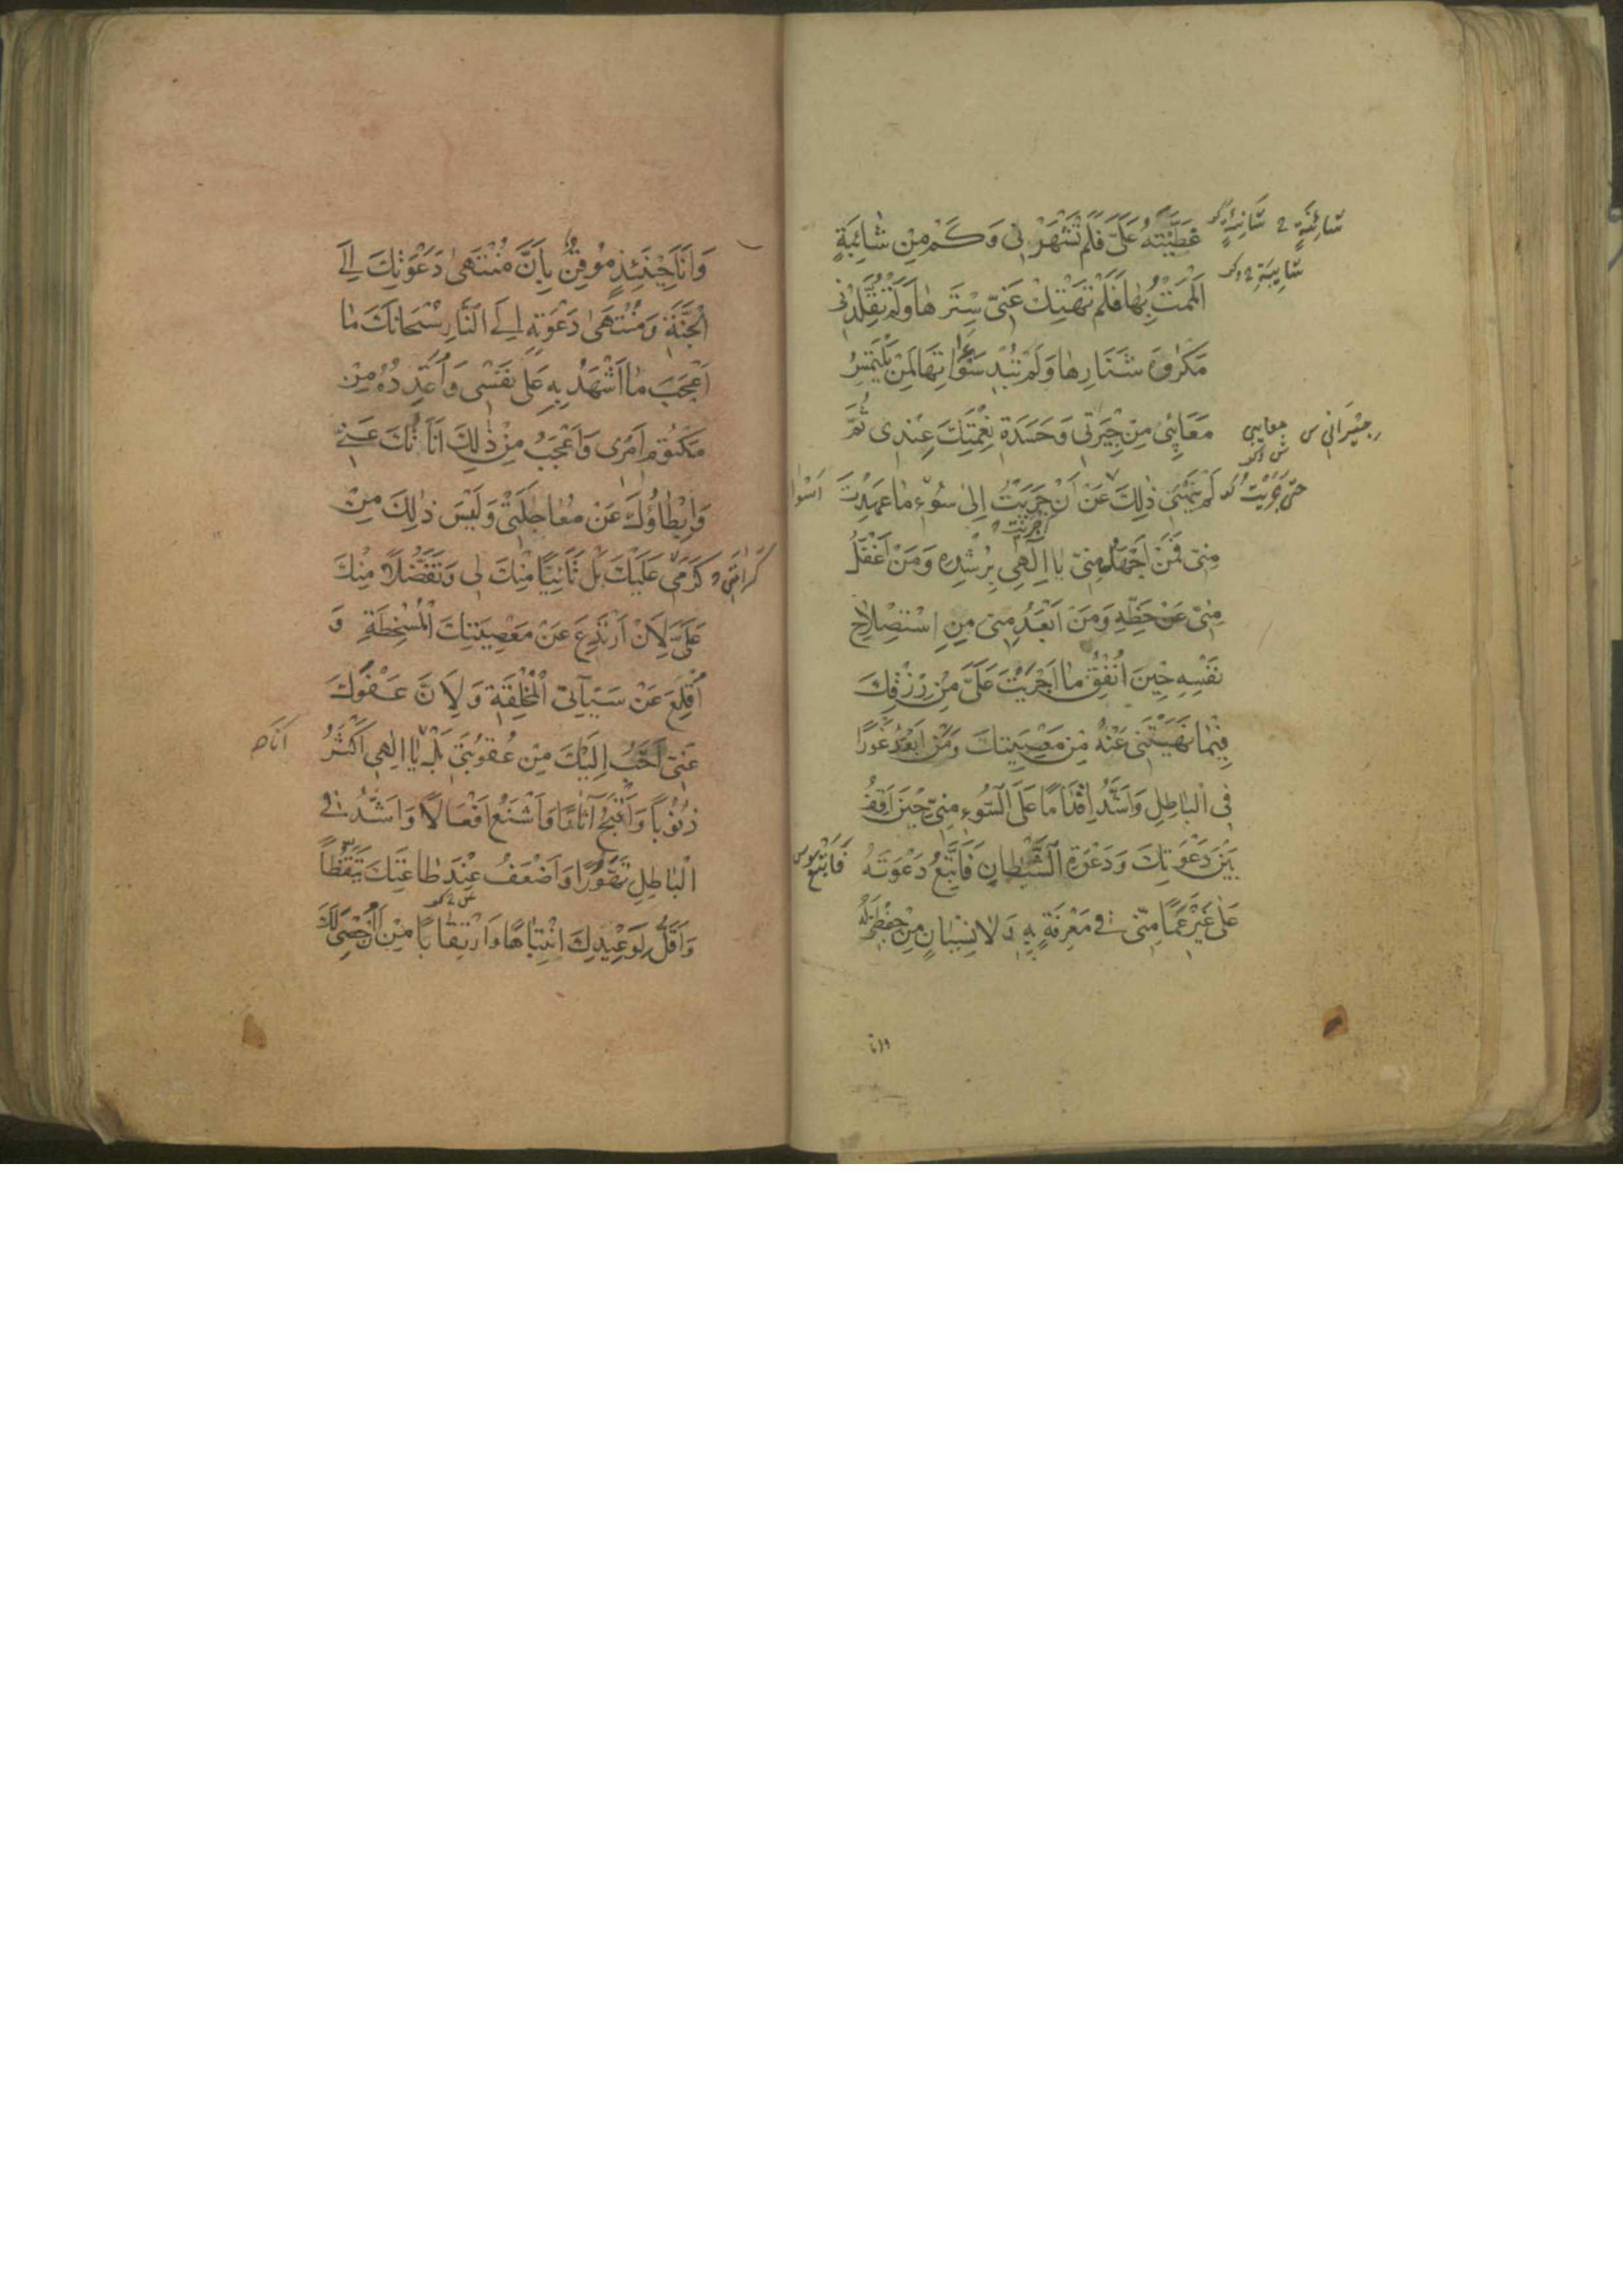 غَطَّيْتَهُ عَلَيَّ فَلَمْ تَشْهَرْنِي وَكَمْ مِنْ شَائِبَةٍ
شَائِنَةٍ
أَلْمَمْتُ بِهَا فَلَمْ تَهْتِكْ عَنِّي سِتْرَهَا وَلَمْ تُقَلِّدْنِي
مَكْرُوهَ شَنَارِهَا وَلَمْ تُبْدِ سَوْآتِهَا لِمَنْ يَلْتَمِسُ
مَعَائِبِي مِنْ جِيرَتِي وَحَسَدَةِ نِعْمَتِكَ عِنْدِي ثُمَّ
معايبي
جيراني س
لَمْ يَنْهَنِي ذٰلِكَ عَنْ أَنْ جَرَيْتُ إِلَى سُوءِ مَا عَهِدْتَ
حَتّى جَرَيْتُ
مِنِّي فَمَنْ أَجْهَلُ مِنِّي يَا إِلٰهِي بِرُشْدِهِ وَمَنْ أَغْفَلُ
مِنِّي عَنْ حَظِّهِ وَمَنْ أَبْعَدُ مِنِّي مِنِ اسْتِصْلَاحِ
نَفْسِهِ حِينَ أُنْفِقُ مَا أَجْرَيْتَ عَلَيَّ مِنْ رِزْقِكَ
فِيمَا نَهَيْتَنِي عَنْهُ مِنْ مَعْصِيَتِكَ وَمَنْ أَبْعَدُ غَوْرًا
فِي الْبَاطِلِ وَأَشَدُّ إِقْدَامًا عَلَى السُّوءِ مِنِّي حِينَ أَقِفُ
بَيْنَ دَعْوَتِكَ وَدَعْوَةِ الشَّيْطَانِ فَأَتَّبِعُ دَعْوَتَهُ
فَأَتْبَعُ س
عَلَى غَيْرِ عَمًى مِنِّي فِي مَعْرِفَةٍ بِهِ وَلَا نِسْيَانٍ مِنْ حِفْظِي لَهُ
وانا
وَأَنَا حِينَئِذٍ مُوقِنٌ بِأَنَّ مُنْتَهَى دَعْوَتِكَ إِلَى
الْجَنَّةِ وَمُنْتَهَى دَعْوَتِهِ إِلَى النَّارِ سُبْحَانَكَ مَا
أَعْجَبَ مَا أَشْهَدُ بِهِ عَلَى نَفْسِي وَأُعَدِّدُهُ مِنْ
مَكْتُومِ أَمْرِي وَأَعْجَبُ مِنْ ذٰلِكَ أَنَاتُكَ عَنِّي
وَإِبْطَاؤُكَ عَنْ مُعَاجَلَتِي وَلَيْسَ ذٰلِكَ مِنْ
كَرَمِي عَلَيْكَ بَلْ تَأَنِّيًا مِنْكَ لِي وَتَفَضُّلًا مِنْكَ
كَرَامَتِي
عَلَيَّ لِأَنْ أَرْتَدِعَ عَنْ مَعْصِيَتِكَ الْمُسْخِطَةِ وَ
أُقْلِعَ عَنْ سَيِّئَاتِي الْمُخْلِقَةِ وَلِأَنَّ عَفْوَكَ
عَنِّي أَحَبُّ إِلَيْكَ مِنْ عُقُوبَتِي بَلْ يَا إِلٰهِي أَكْثَرُ
ذُنُوبًا وَأَقْبَحُ آثَارًا وَأَشْنَعُ أَفْعَالًا وَأَشَدُّ فِي
الْبَاطِلِ تَهَوُّرًا وَأَضْعَفُ عِنْدَ طَاعَتِكَ تَيَقُّظًا
وَأَقَلُّ لِوَعِيدِكَ انْتِبَاهًا وَارْتِقَابًا مِنْ أَنْ أُحْصِيَ لَكَ